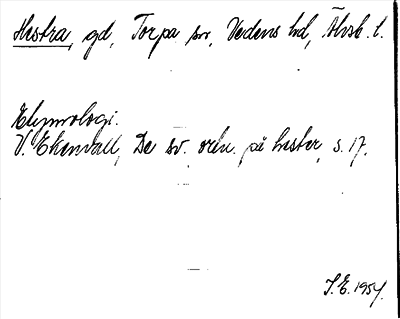 Hestra, gd, Torpa sn, Vedens hd, Älvsb. l.
Etymologi.
V. Ekenvall, De sv. ortn. på hester, s. 17.
S.E. 1954.